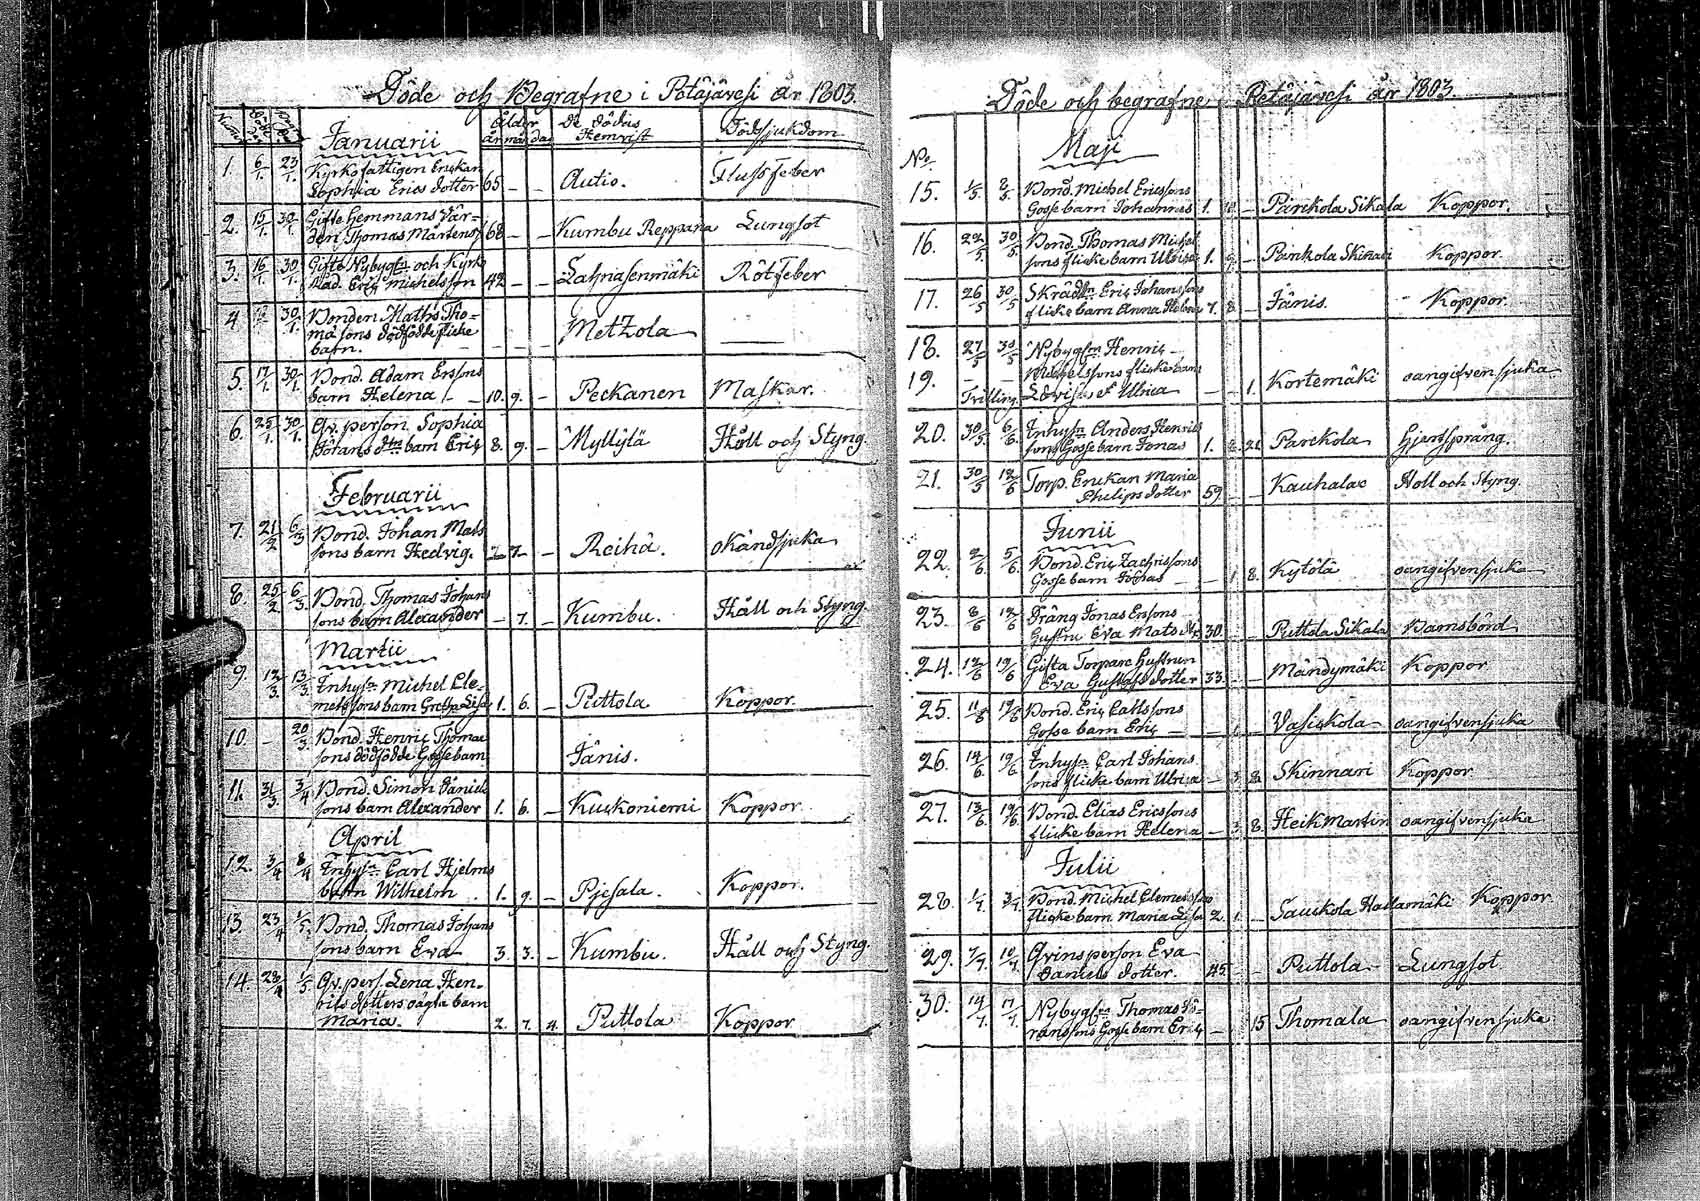 Döde och Begrafne i Petäjävesi år 1803.
Ålder De Dödas Dödssjukdom
år mån da Hemvist
Januarii
1. 6/1. 23/1. Kyrkofattigen Enckan
Sophia Erics dotter 65 – – Autio. Flussfeber
2. 15/1. 30/1. Gifte Hemmans Vär=
den Thomas Mårtenss. 68 – – Kumbu Reppana Lungsot
3. 16/1. 30/1. Gifte Nybygn och Kyrko
Eric Michelsson 42 – – Rötfeber
4 30/1. Bonden Maths Tho=
ma sons dödfödde flicke
barn. – – – Metzola
5. 17/1. 30/1. Bond. Adam Erssons
barn Helena – 10. 9. – Peckanen Maskar.
6. 25/1. 30/1. Qv. person. Sophia
Johans dtr barn Eric 8. 9. – Myllylä Håll och Styng
Februarii
7. 21/2 6/3 Bond. Johan Mats
sons barn Hedvig. 2 7. – Reihä. okänd sjuka
8. 25/2 6/3 Bond. Thomas Johans
sons barn Alexander – 7. – Kumbu. Håll och Styng.
Martii
9. 12/3. 13/3. Inhysn Michel Cle=
metssons barn Greta Lisa 1. 6. – Puttola Koppor.
10. – 20/3. Bond. Henric Thomae
sons dödfödde Gossebarn Jänis.
11. 31/3. 3/4 Bond. Simon Daniels
sons barn Alexander 1. 6. – Kuckoniemi Koppor.
April
12. 3/4 8/4 Inhysn Carl Hjelms
barn Wilhelm 1. 9. – Pjesala. Koppor.
13. 23/4 1/5. Bond. Thomas Johans
sons barn Eva 3. 3. – Kumbu. Håll och Styng.
14. 28/4 1/5 Qv. pers. Lena Hen-
rics dotters oägta barn
Maria. 2. 7. 4. Puttola Koppor
Döde och begrafne i Petäjävesi år 1803.
No. Maji
15. 1/5. 8/5. Bond. Michel Ericssons
Gosse barn Johannes 1. – Parkola Sikala Koppor.
16. 22/5. 30/5 Bond. Thomas Michel
sons flicke barn Ulrica 1. – Pankola Skinari Koppor.
17. 26/5 30/5 Skrädn Eric Johanssons
flicke barn Anna Helena 7. 8. – Jänis. Koppor.
18. 27/5 30/5 Nybygn Henric
19. – – Michelssons flickebarn
Tvilling. Lovisa & Ulrica – – 1. Kortemäki oangifven sjuka
20. 30/5. 6/6. Inhysn Anders Henrics
sons Gosse barn Jonas 1. 21 Parckola Hjertsprång.
21. 30/5 12/6 Torp. Enckan Maria
Philips dotter 59. – – Kauhalae Håll och Styng.
Junii
22. 2/6. 5/6. Bond. Eric Zachrissons
Gosse barn – – 1. 8. Kytölä oangifven sjuka
23. 8/6 12/6 Dräng Jonas Erssons
Hustru Eva Mats dtr 30. – – Puttola Sikala Barnsbörd
24. 12/6 19/6 Gifta Torpare Hustrun
Eva Gustafs dotter 33. – – Mändymäki Koppor
25. 11/6 19/6 Bond. Eric Calssons
Gosse barn Eric – – 1. – Vasickola oangifven sjuka
26. 14/6. 19/6 Inhysn Carl Johans
sons flicke barn Ulrica – 3 8. Skinnari Koppor
27. 13/6. 19/6 Bond. Elias Ericssons
flicke barn Helena – 3. 8. Heik Martin oangifven sjuka
Julii
28. 1/7. 3/7. Bond. Michel Clemetsson
flicke barn Maria Lisa 2. 1. – Sauckola Hallamäki Koppor
29. 7/7. 10/7. Qvinsperson Eva
Daniels dotter. 45 – – Puttola Lungsot
30. 14/7. 17/7. Nybygn Thomas Jö-
ranssons Gosse barn Eric – 15 Thomala oangifven sjuka.